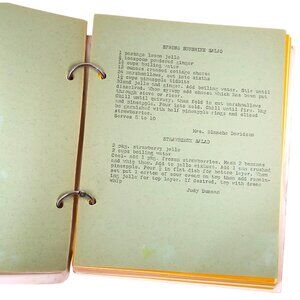 SPRING SUPREME SALAD
1 package lemon jello
teaspoon powdered ginger
cups boiling water
ounces creamed cottage cheese
marshmallows, cut into sixths
pineapple tidbits
Blend jello and ginger. Add boiling water. Stir until
dissolved. When syrupy add cheese which has been put
through sieve or ricer.
Chill until syrupy, then fold in cut marshmallows
and pineapple. Pour into mold. Chill until firm. May
be garnished with half pineapple rings and sliced
strawberries.
Serves 8 to 10
Mrs. Davidson
STRAWBERRY SALAD
2 pkg. strawberry jello
2 cups boiling water
Cool- add 1 pkg. frozen strawberries. Mash 2 bananas
and whip them. Add to jello mixture. Add 1 can crushed
pineapple. Pour ½ in flat dish for bottom layer. When
set put 1 carton of sour cream on top then add remain-
ing jello for top layer. If desired, top with
whip
Judy Duncan